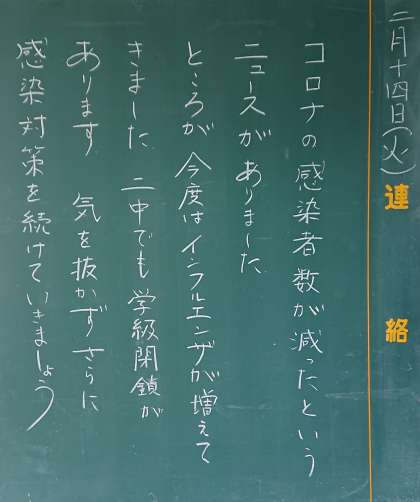 二月十四日(火)
連絡
コロナの感染者数が減ったという
ニュースがありました
ところが 今度はインフルエンザが増えて
きました 二中でも 学級閉鎖が
あります 気を抜かず さらに
感染対策を続けていきましょう